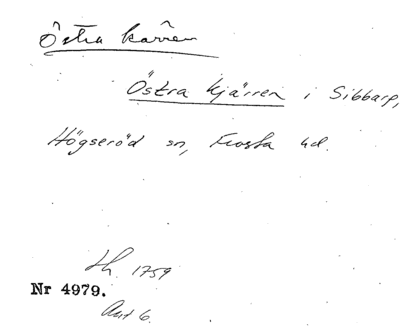 Östra kärren
Östra kjärren i Sibbarp,
Högseröd sn, Frosta hd.
Lh. 1759
Nr 4979.
Akt 6.